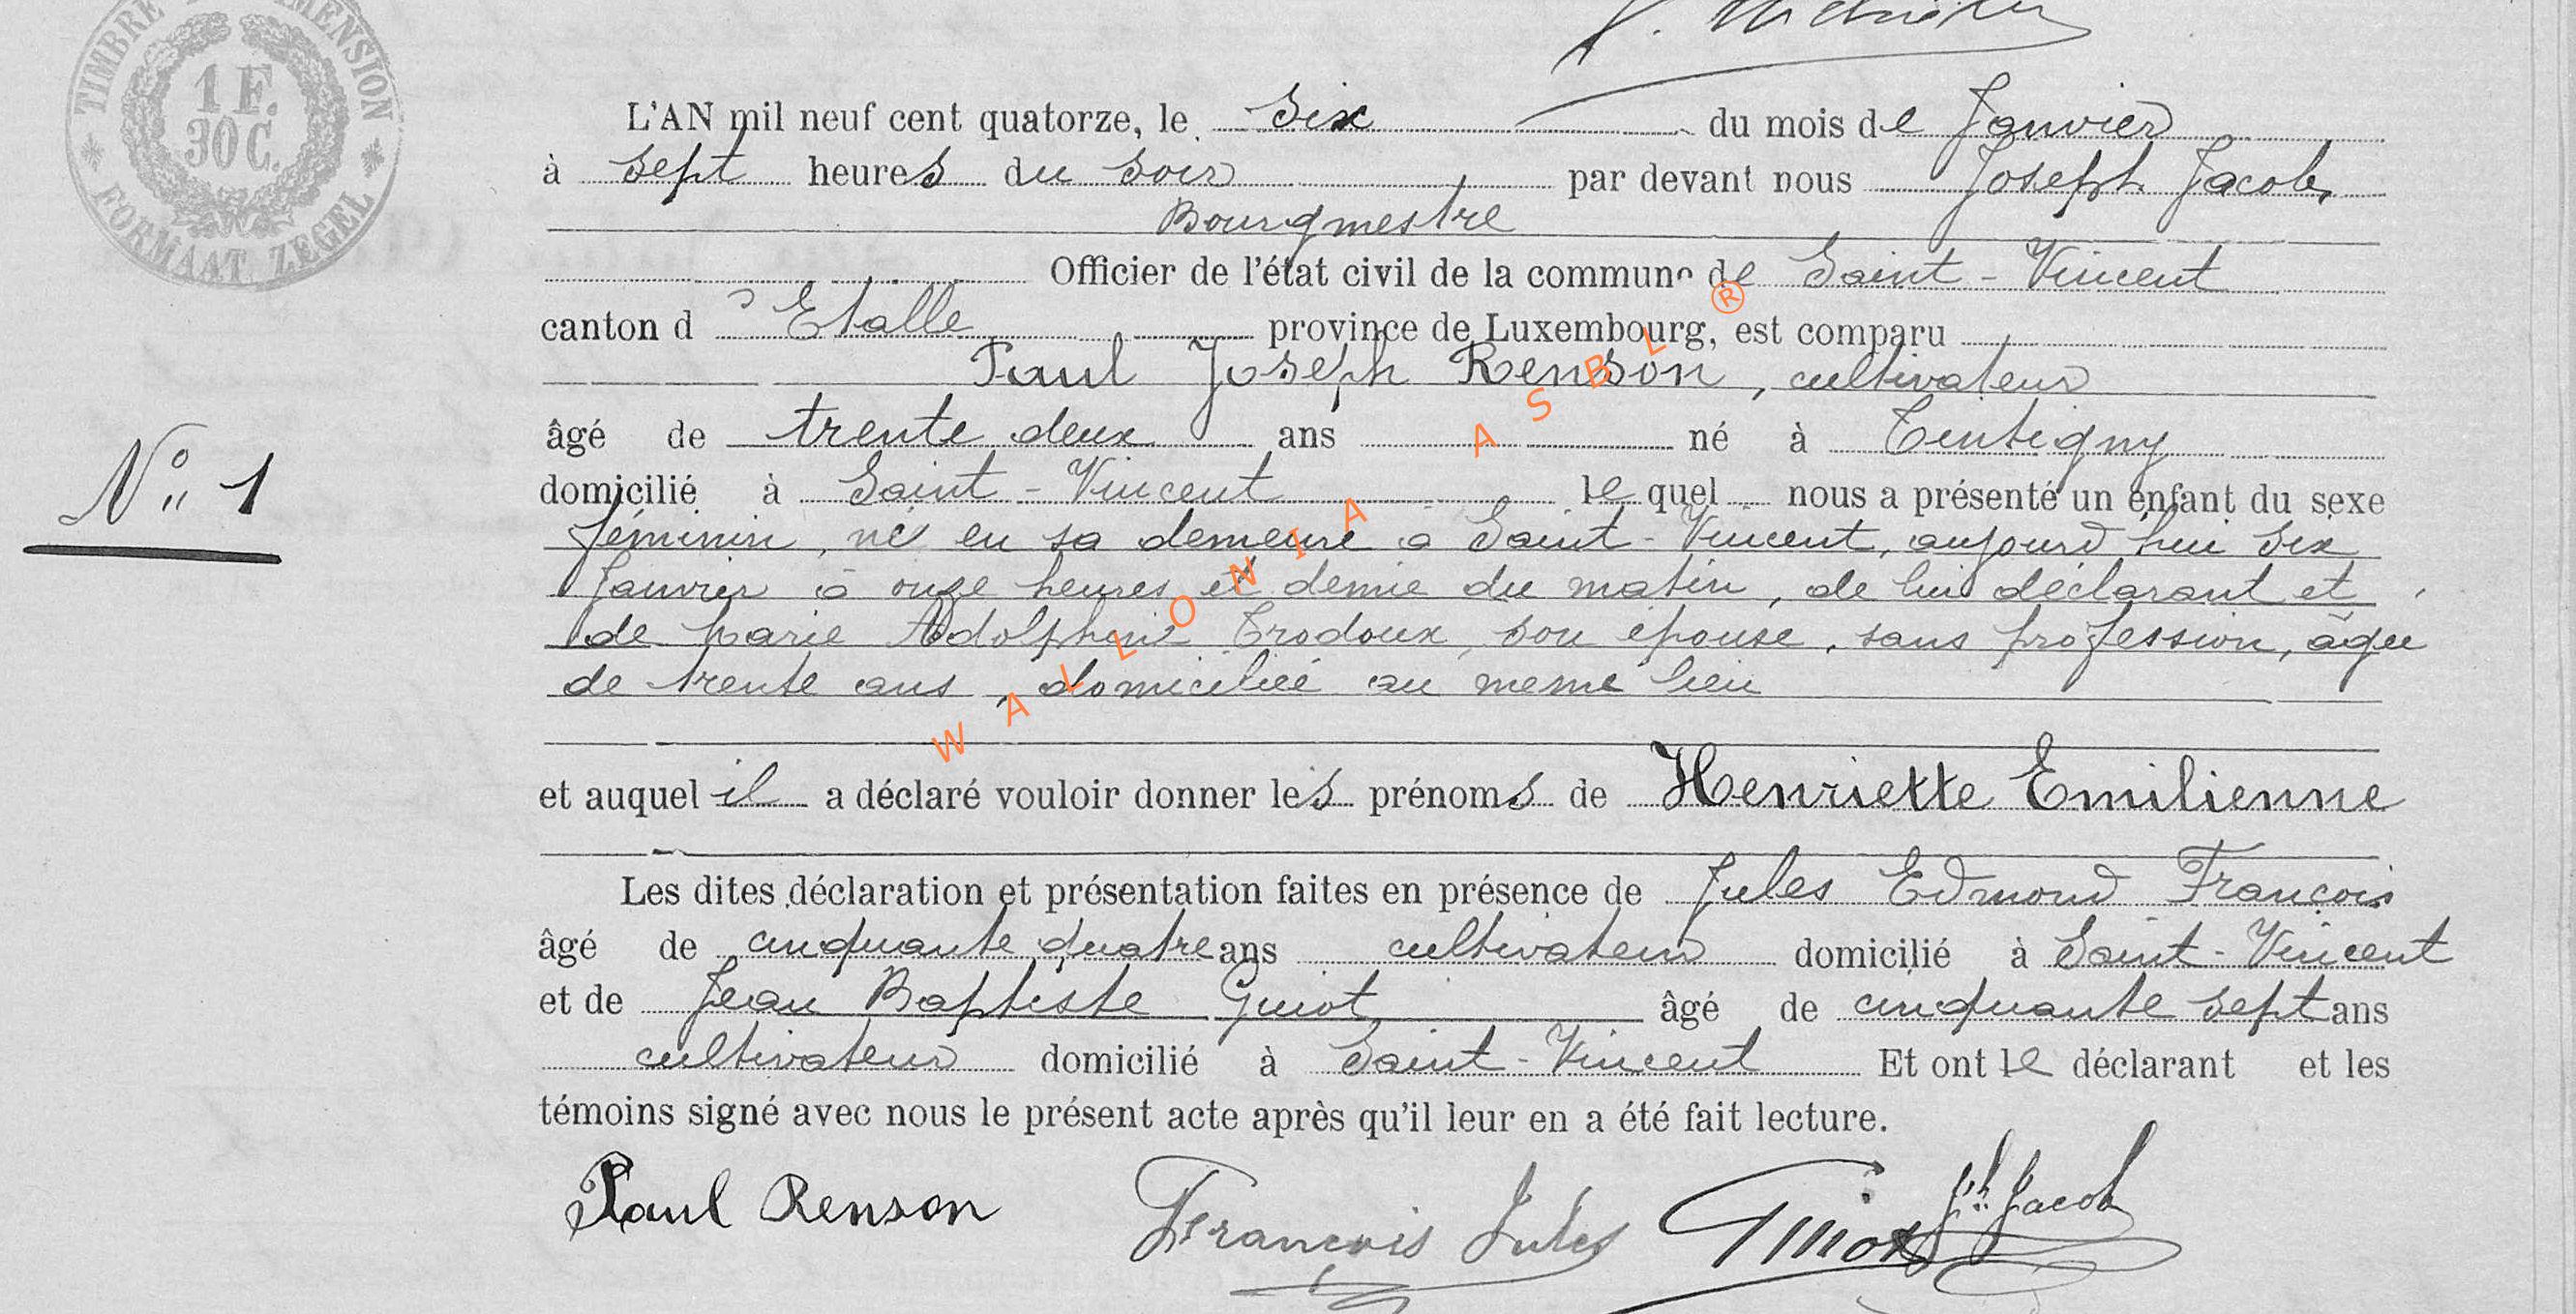 TIMBRE DIMENSION
1 F.
30 C.
FORMAAT ZEGEL
L'AN mil neuf cent quatorze, le six du mois de Janvier
à sept heures du soir par devant nous Joseph Jacob,
Bourgmestre
Officier de l'état civil de la commune de Saint-Vincent
canton d'Etalle province de Luxembourg, est comparu
Paul Joseph Renson, cultivateur
âgé de trente deux ans né à Tintigny
domicilié à Saint-Vincent lequel nous a présenté un enfant du sexe
N° 1
féminin, né en sa demeure a Saint-Vincent, aujourd'hui six
Janvier à onze heures et demie du matin, de lui déclarant et
de Marie Adolphine Trodoux, son épouse, sans profession, âgée
de trente ans, domiciliée au meme lieu
et auquel il a déclaré vouloir donner les prénoms de Henriette Emilienne
Les dites déclaration et présentation faites en présence de Jules Edmond François
âgé de cinquante quatre ans cultivateur domicilié à Saint-Vincent
et de Jean Baptiste Guiot âgé de cinquante sept ans
cultivateur domicilié à Saint-Vincent Et ont le déclarant et les
témoins signé avec nous le présent acte après qu'il leur en a été fait lecture.
Paul Renson François Jules Guiot Jh Jacob
WALLONIA ASBL ®